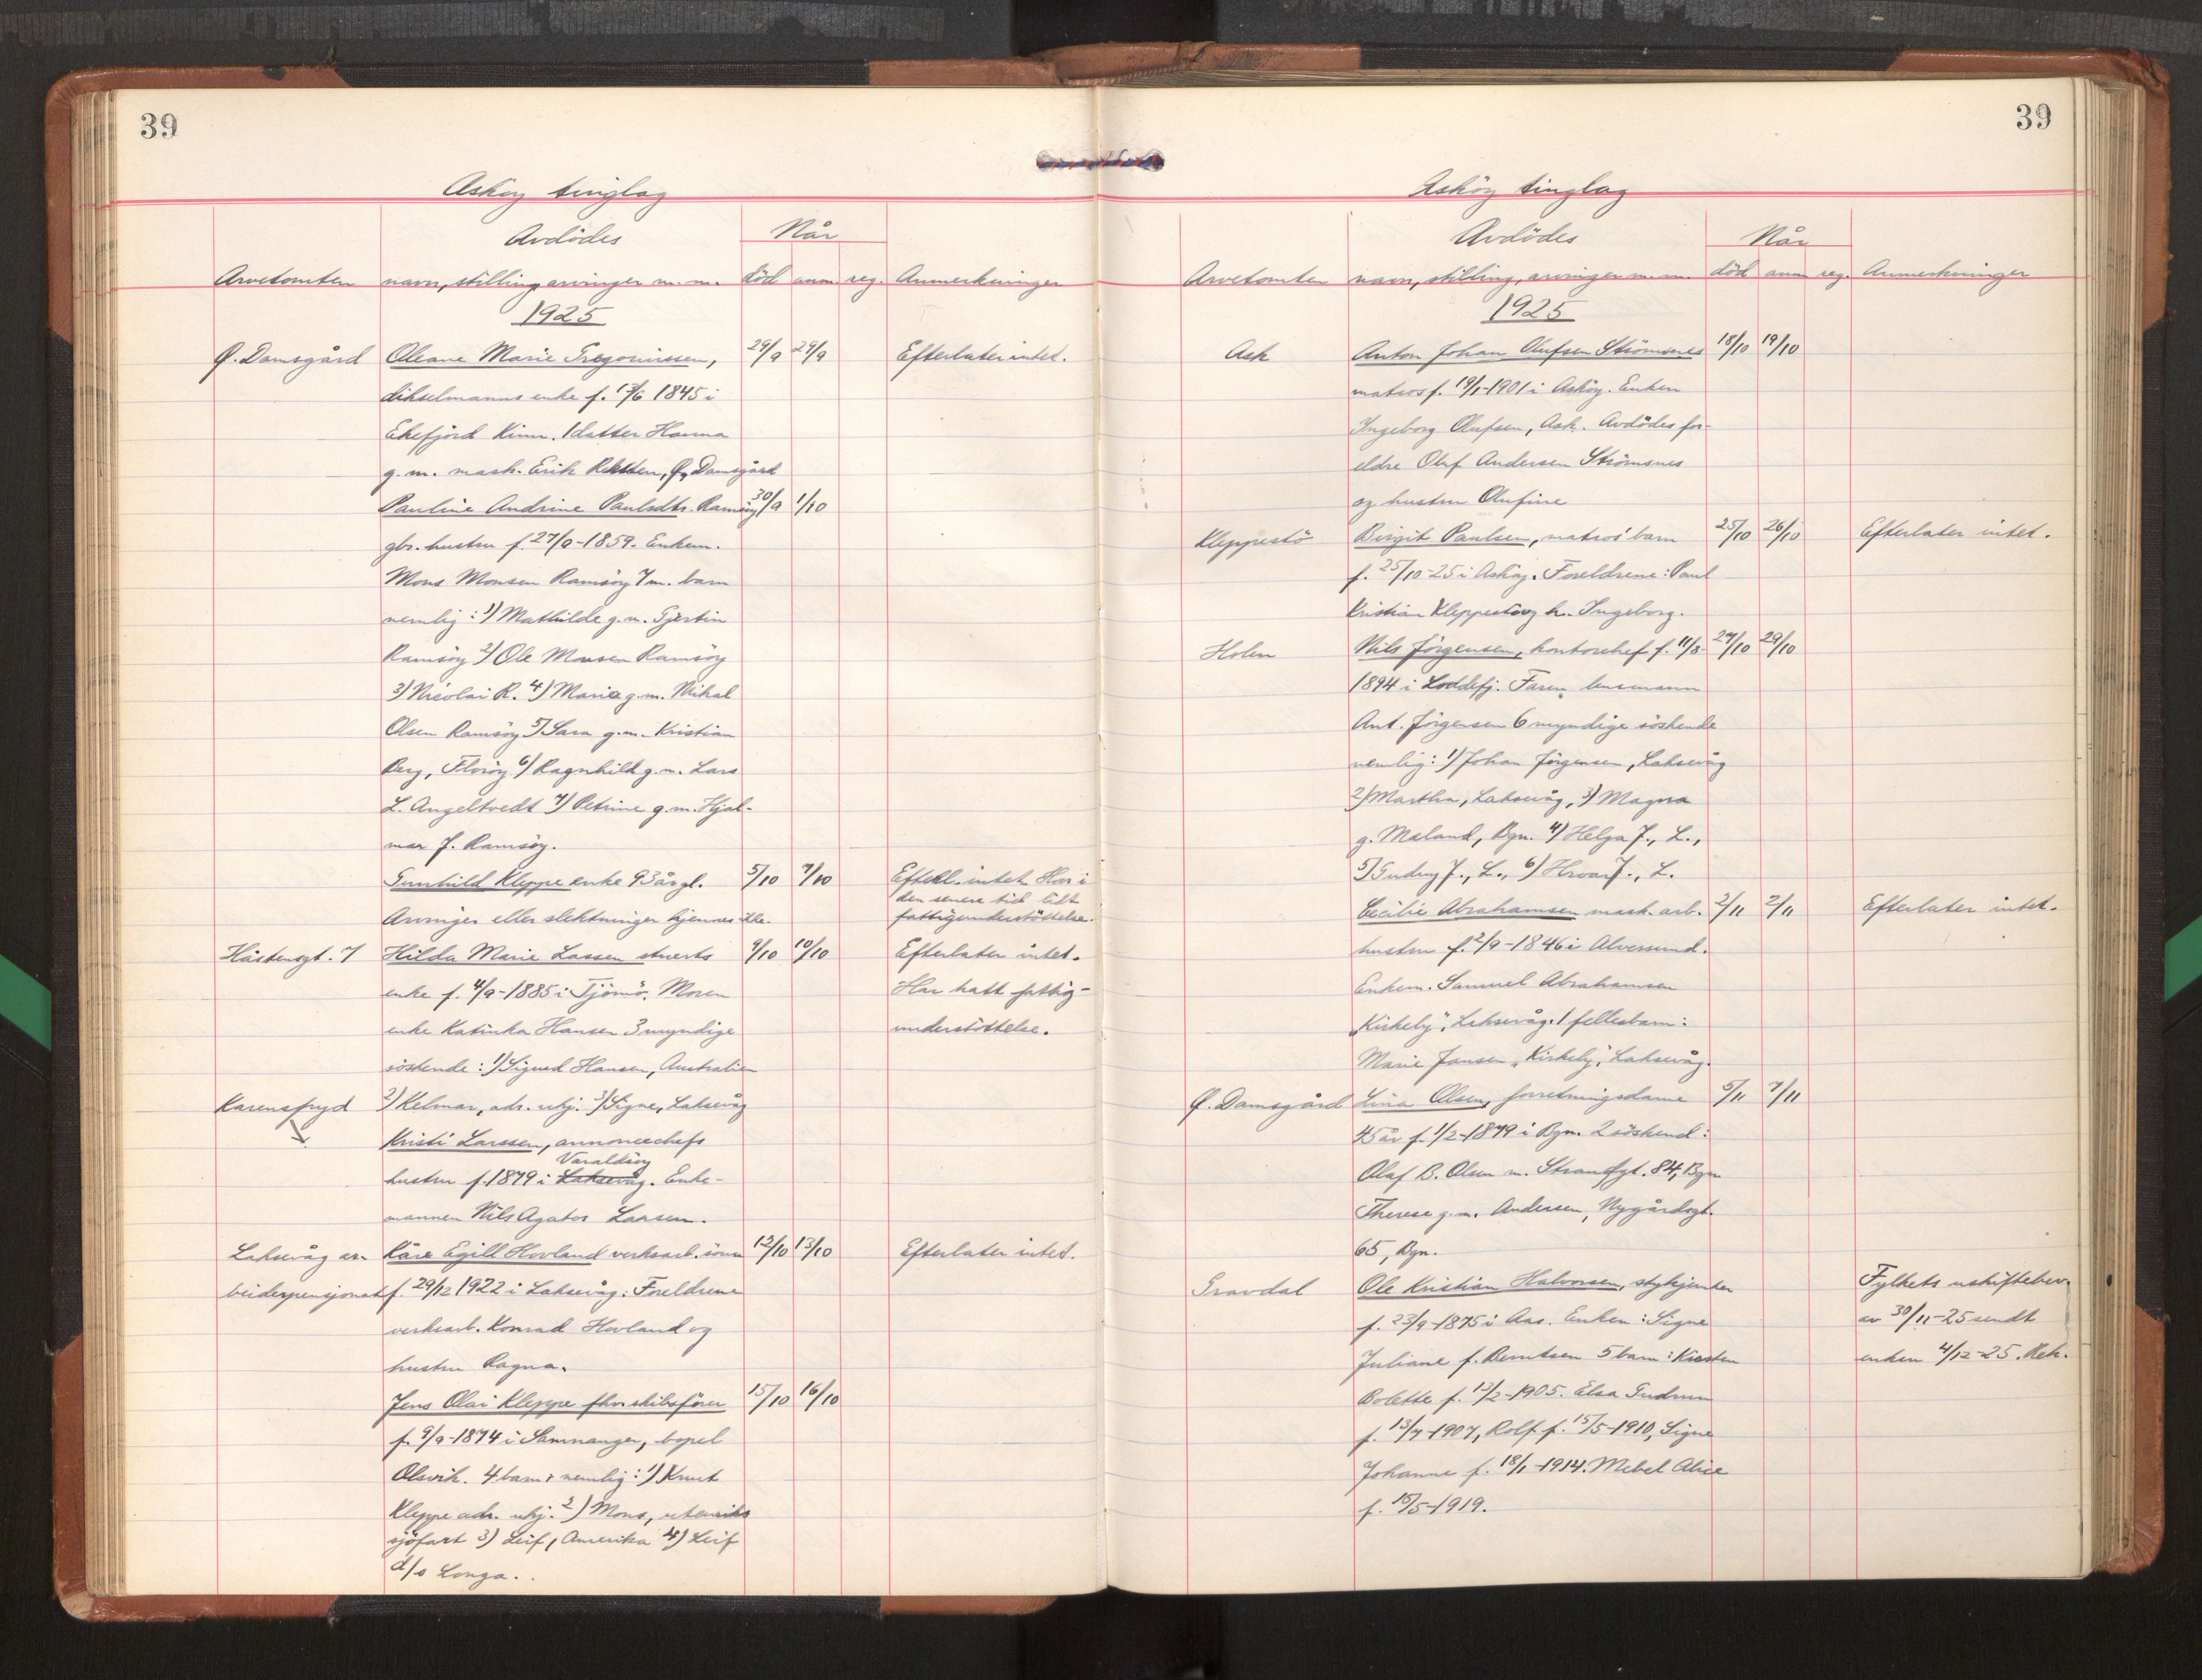 39
Askøy tinglag
Avdödes
Når
Arvetomten navn, stilling arvinger m. m. död anm reg. Anmerkninger
1925
Ø. Damsgård Oleane Marie Gregoriussen, 29/9 29/9 Efterlater intet.
dikselmanns enke f. 17/6 1845 i
Eikefjord Kinn. 1 datter Hanna
g. m. mask. Erik Rekstden, Ø. Damsgård
Pauline Andrine Paulsdtr. Ramsöy 30/9 1/10
gbr. hustru f. 27/9-1859. Enkem.
Mons Monsen Ramsöy 7 m. barn
nemlig: 1) Mathilde g. m. Gjertin
Ramsöy 2) Ole Monsen Ramsöy
3) Nicolai R. 4) Marie g. m. Mikal
Olsen Ramsöy 5) Sara g. m. Kristian
Berg, Floröy 6) Ragnhild g. m. Lars
L. Angeltvedt 7) Petrine g. m. Hjal-
mar J. Ramsöy.
Gunhild Kleppe enke 93 år gl. 5/10 7/10 Efterl. intet Har i
den senere tid lidt
Arvinger eller slektninger kjennes ikke. fattigunderstöttelse.
Håstensgt. 7 Hilda Marie Lassen stuerts 9/10 10/10 Efterlater intet.
enke f. 4/9-1885 i Tjömö. Moren Har hatt fattig-
enke Katinka Hansen 3 myndige understöttelse.
söskende: 1) Sigurd Hansen, Australien
Karensfryd 2) Kelmar, adr. ukj. 3) Signe, Laksevåg
Kristi Larssen, annoncechefs
Varaldsöy
hustru f. 1879 i Laksevåg. Enke-
mannen Nils Agator Larsen.
Laksevåg ar- Kåre Egill Hovland verksarb. sönn 12/10 13/10 Efterlater intet.
beiderpensjonat f. 29/12 1922 i Laksevåg. Foreldrene
verksarb. Konrad Hovland og
hustru Ragna.
Jens Olai Kleppe fhv. skibsförer 15/10 16/10
f. 9/9-1874 i Samnanger, bopel
Olsvik. 4 barn nemlig: 1) Knut
Kleppe adr. ukj. 2) Mons, utenriks
sjöfart 3) Leif, Amerika 4) Leif
d/s Longa.
39
Asköy tinglag
Avdödes
Når
Arvetomten navn, stilling, arvinger m. m. död anm reg. Anmerkninger
1925
Ask Anton Johan Olufsen Strömsnes 18/10 19/10
matros f. 19/1-1901 i Asköy. Enken
Ingeborg Olufsen, Ask. Avdödes for-
eldre Oluf Andersen Strömsnes
og hustru Olufine
Kleppestö Birgit Paulsen, matros' barn 25/10 26/10 Efterlater intet.
f. 25/10-25 i Asköy. Foreldrene: Paul
Kristian Kleppestö og h. Ingeborg.
Holen Nils Jörgensen, kontorchef f. 11/8- 27/10 29/10
1894 i Loddefj. Faren lensmann
Ant. Jörgensen 6 myndige söskende
nemlig: 1) Johan Jörgensen, Laksevåg
2) Martha, Laksevåg, 3) Magna
g. Maland, Bgn. 4) Helga J., L.,
5) Gudny J., L., 6) Hroar J., L.
Cecilie Abrahamsen mask. arb. 2/11 2/11 Efterlater intet.
hustru f. 2/9-1846 i Alversund.
Enkem. Samuel Abrahamsen
"Kirkely", Laksevåg. 1 fellesbarn:
Marie Jansen "Kirkely", Laksevåg.
Ø. Damsgård Lina Olsen, forretningsdame 5/11 7/11
45 år f. 1/2-1879 i Bgn. 2 söskend:
Olaf B. Olsen m. Strandgt. 84, Bgn
Therese g. m. Andersen, Nygårdsgt.
65, Bgn.
Gravdal Ole Kristian Halvorsen, stykjunker Fylkets uskiftebev.
f. 23/9-1875 i Aas. Enken: Signe av 30/11-25 sendt
Juliane f. Berntsen 5 barn: Kirsten enken 4/12-25. Rek.
Bolette f. 13/2-1905. Elsa Gudrun
f. 13/7-1907, Rolf f. 15/5-1910, Signe
Johanne f. 18/1-1914. Mebel Alice
f. 15/5-1919.